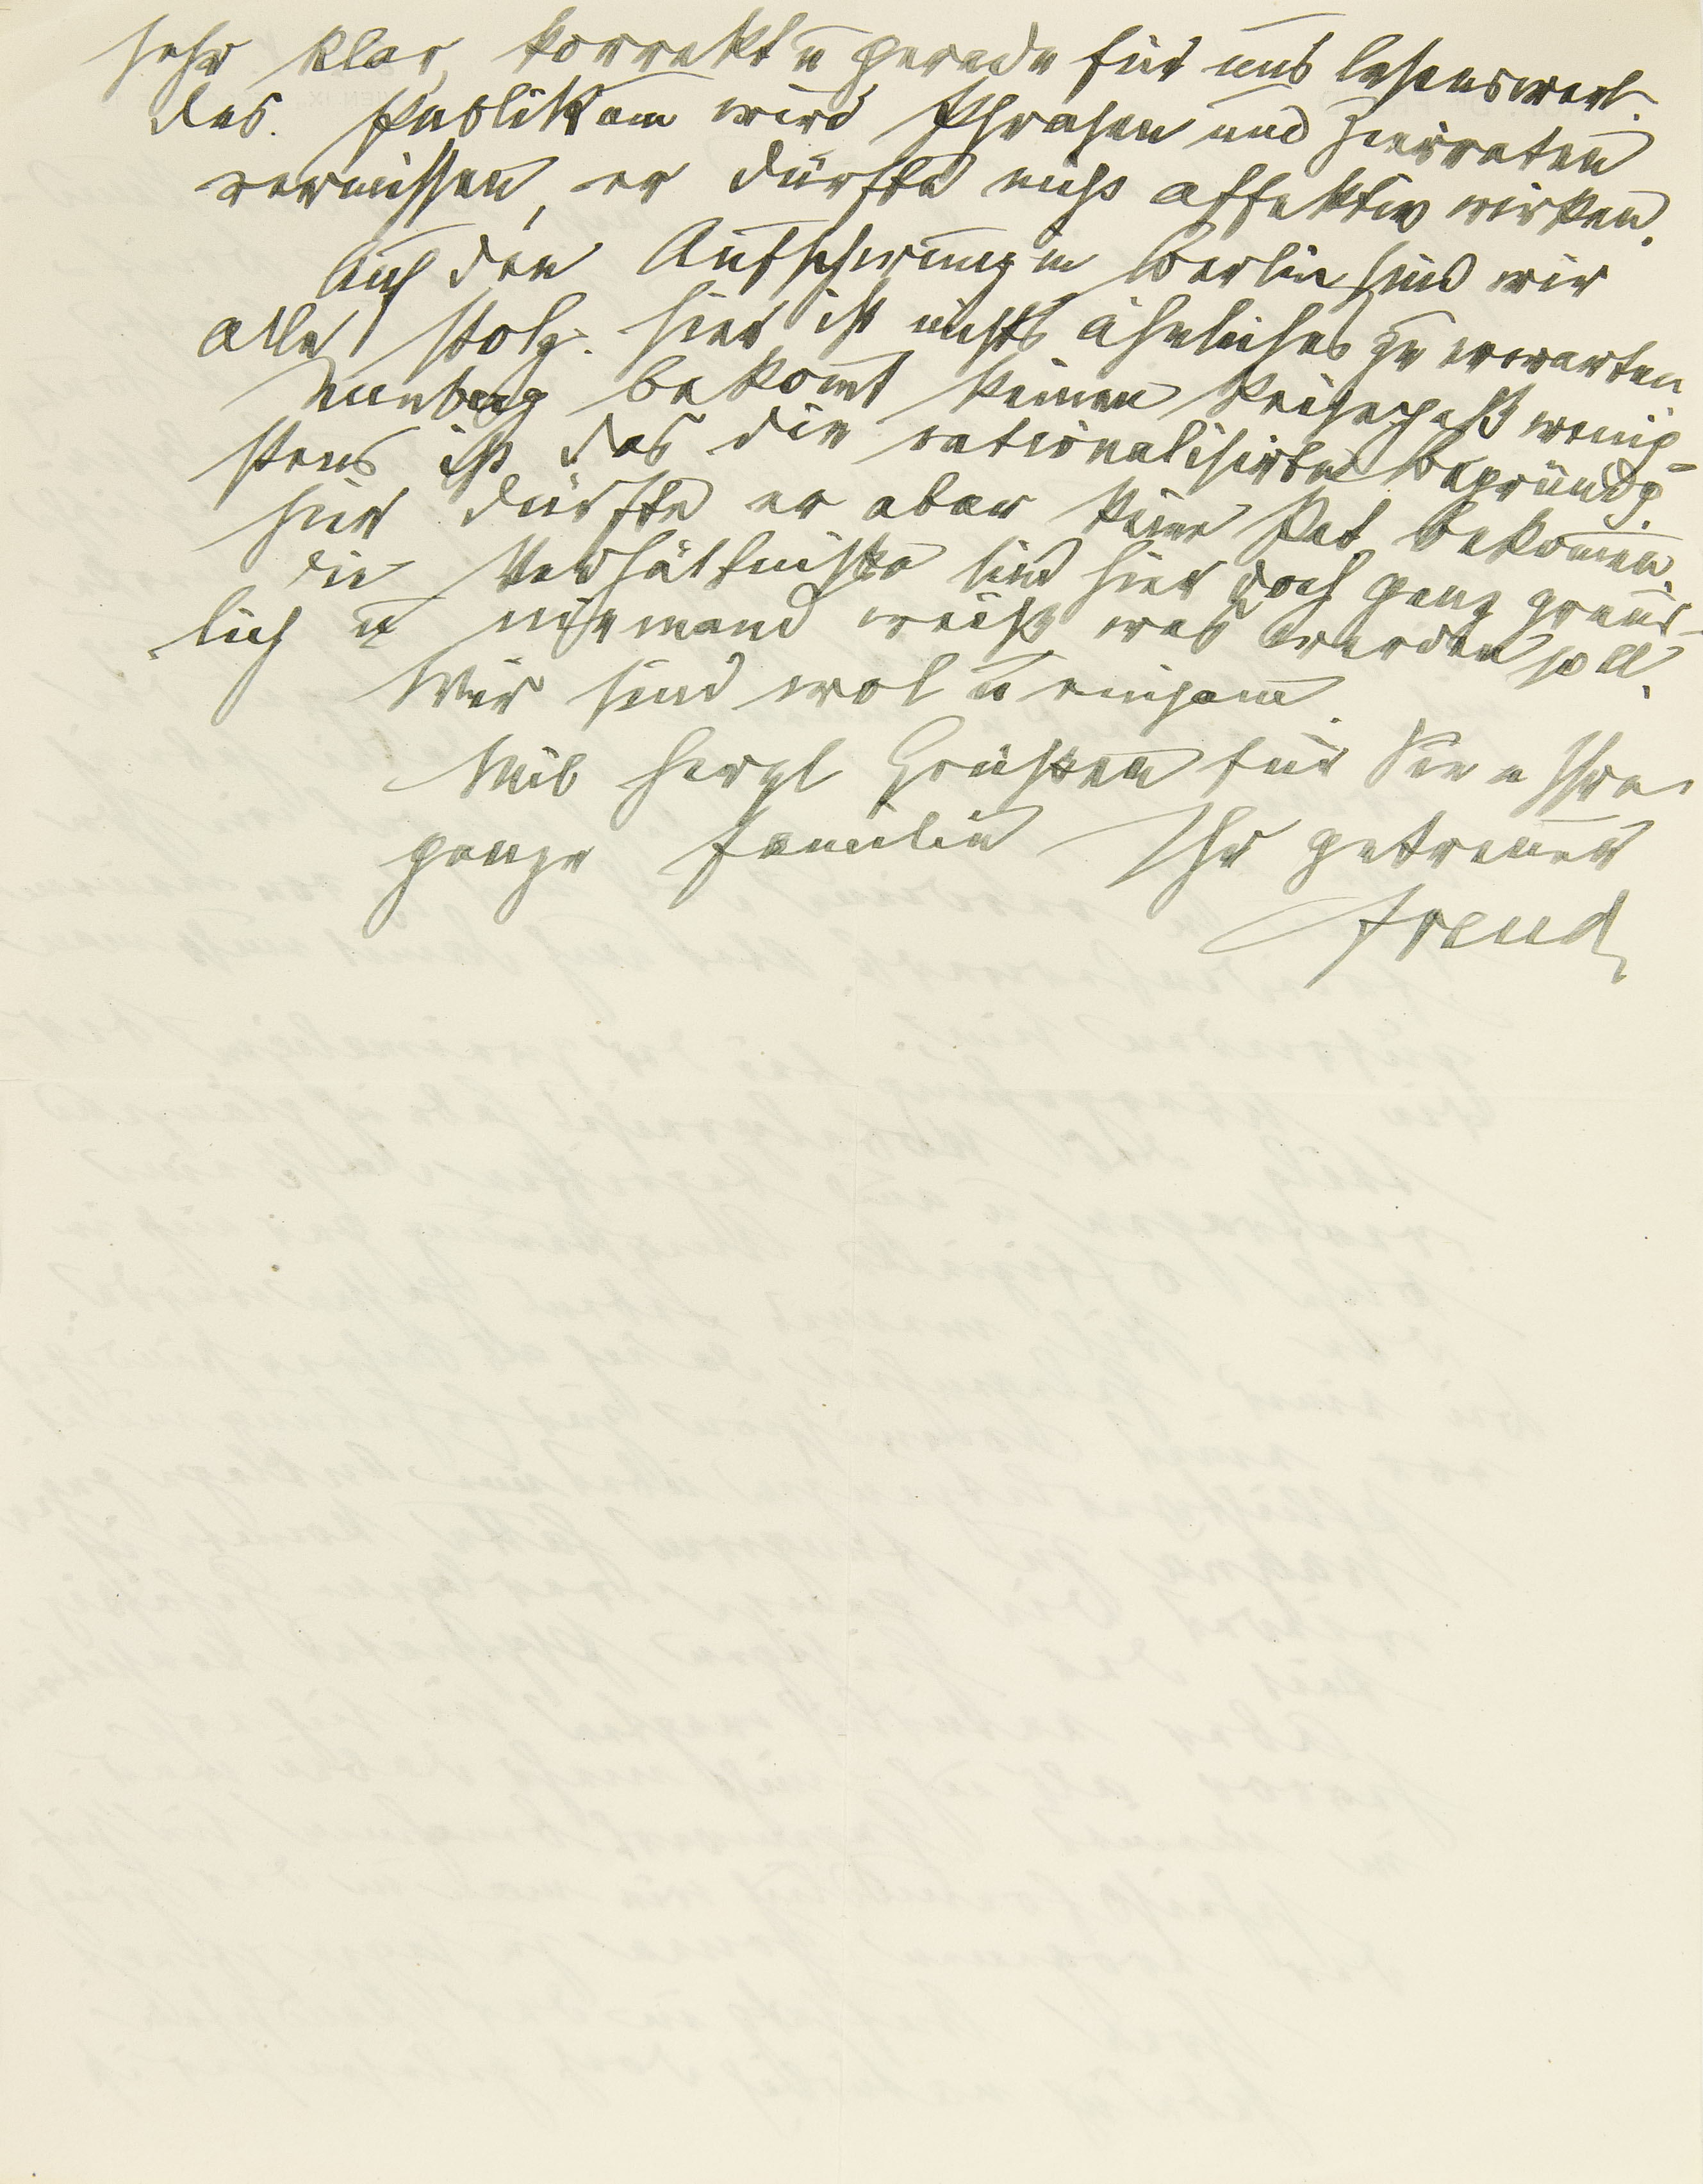 sehr klar, korrekt u gerade für uns lesenswert.
Das Publikum wird Phrasen und Zierraten
vermissen, er dürfte nicht affektiv wirken.
Auf den Aufschwung in Berlin sind wir
alle stolz. Hier ist nichts ähnliches zu erwarten
Nunberg bekomt keinen Reisepaß wenig-
stens ist das die rationalisirte Begründg.
hier dürfte er aber keine Pat. bekomen.
Die Verhältniße sind hier doch ganz greus-
lich u niemand weiß was werden soll.
Wir sind wol u einsam.
Mit herzl Grüßen für Sie u Ihre
ganze Familie Ihr getreuer
Freud